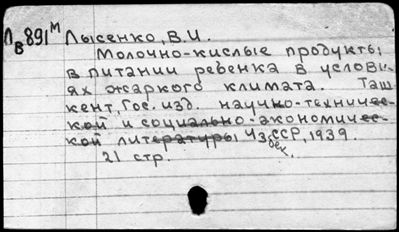 Л В 891 М Лысенко, В.И.
Молочно-кислые продукты
в питании ребенка в услови-
ях жаркого климата. Таш-
кент, Гос. изд. научно-техниче-
ской и социально-экономиче-
ской литературы УзбекССР, 1939.
21 стр.